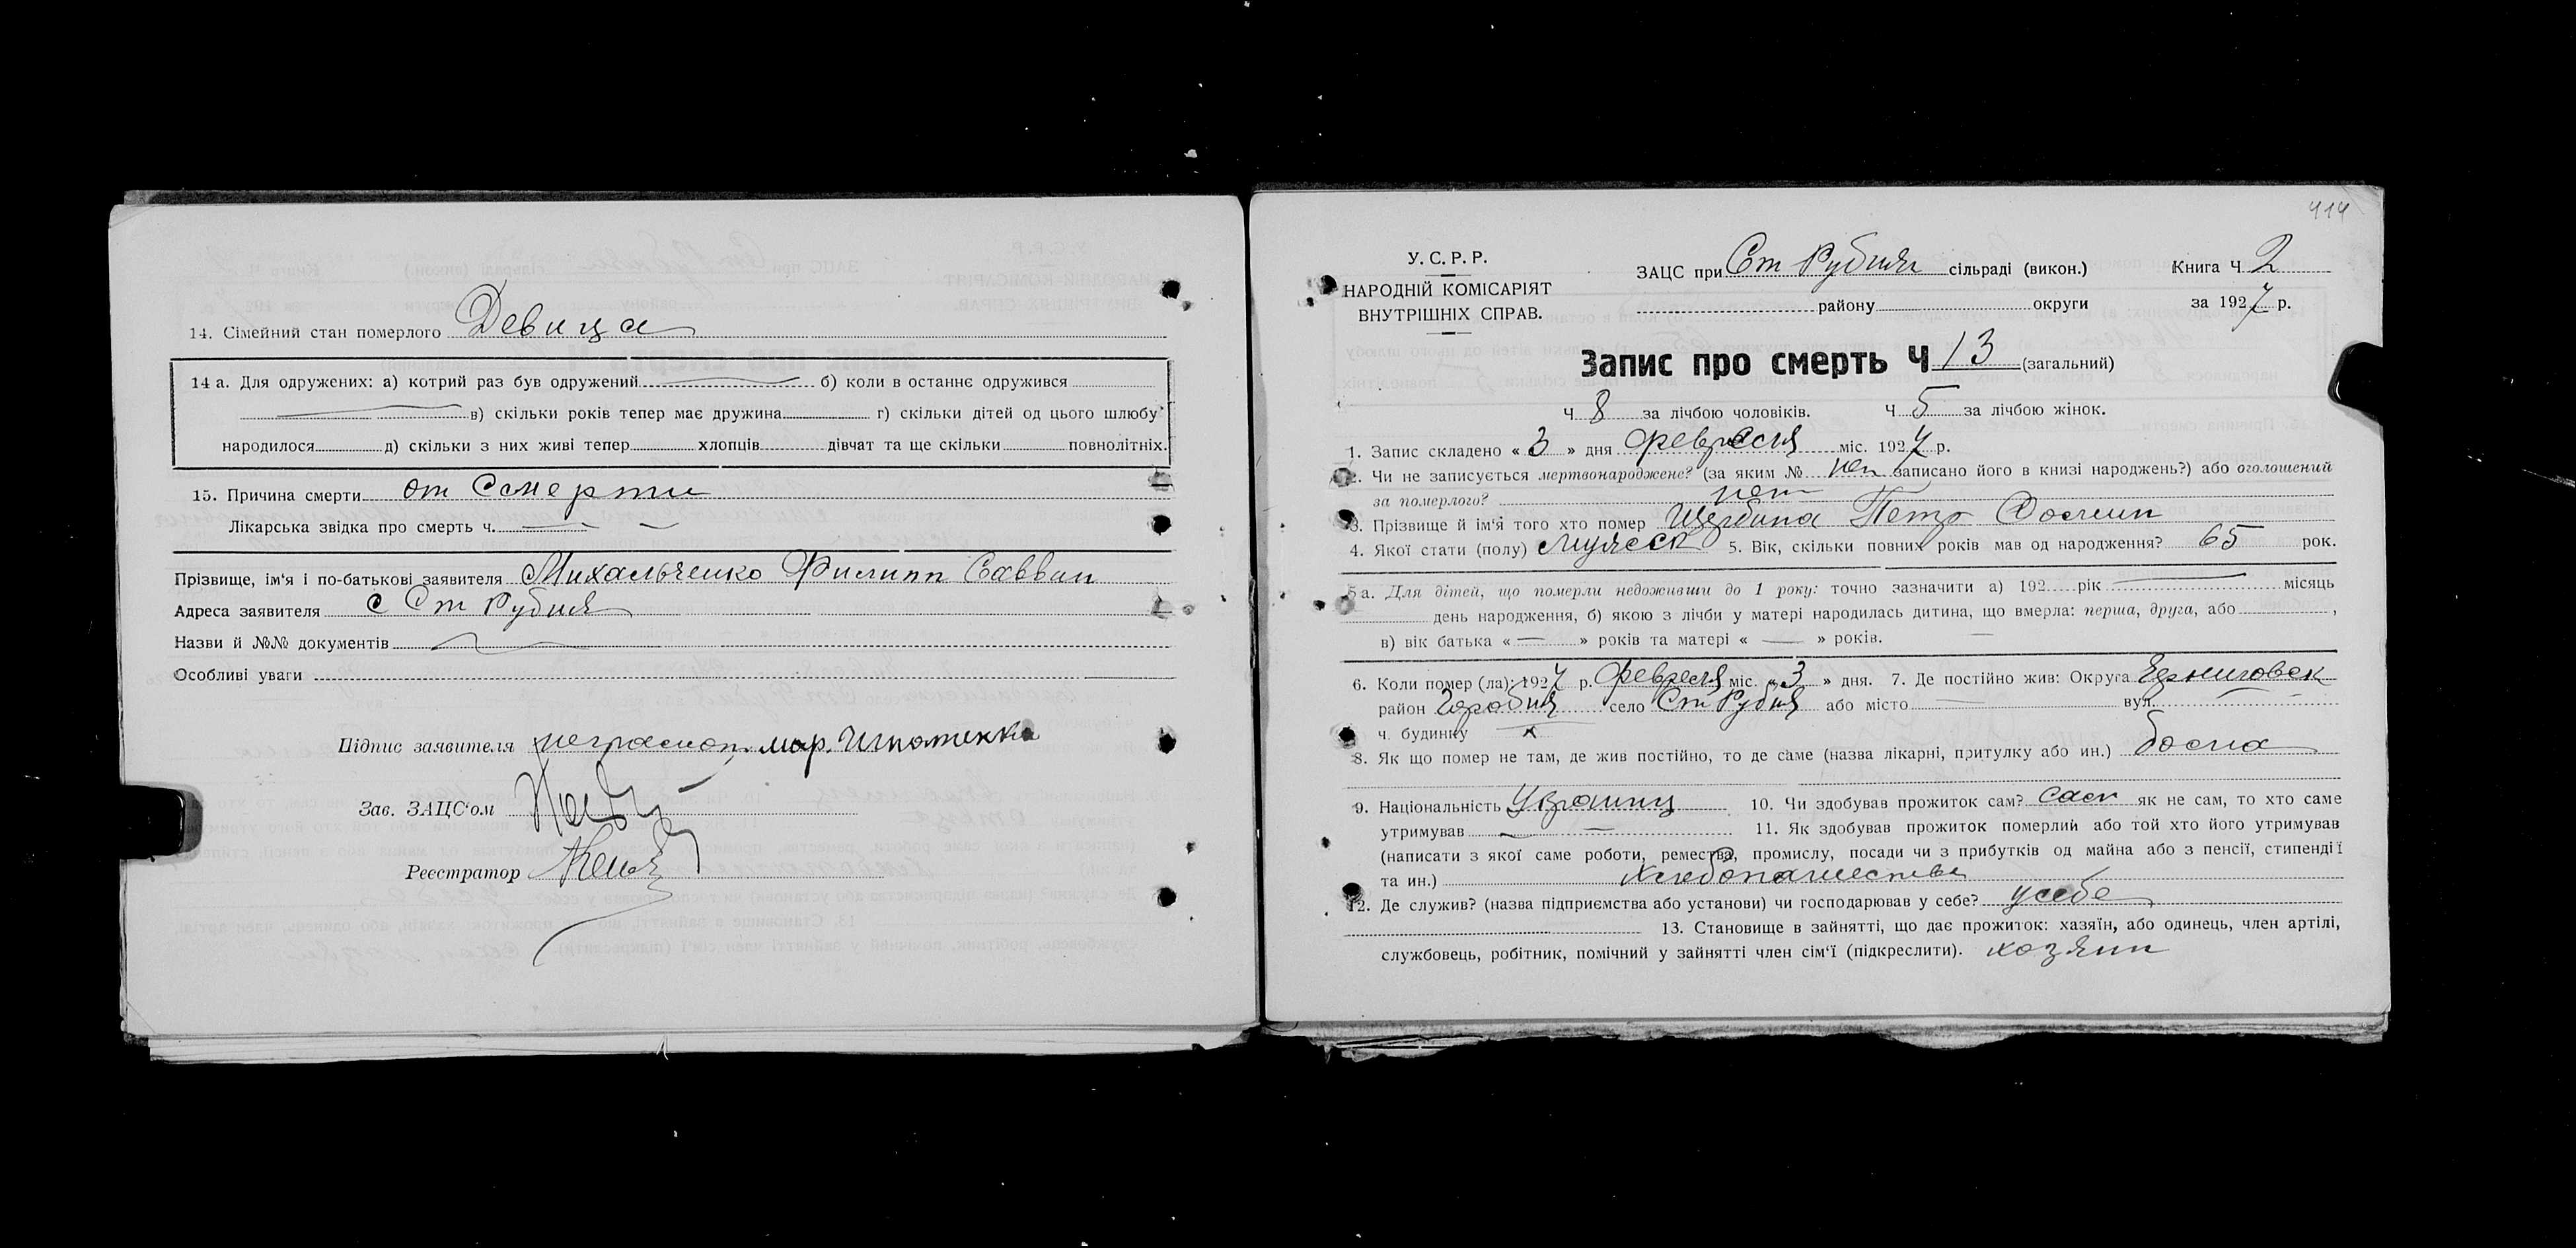 14. Сімейний стан померлого Девица
14 а. Для одружених: а) котрий раз був одружений б) коли в останнє одружився
в) скільки років тепер має дружина г) скільки дітей од цього шлюбу
народилося д) скільки з них живі тепер хлопців дівчат та ще скільки повнолітніх.
15. Причина смерти от Смерти
Лікарська звідка про смерть ч.
Прізвище, ім'я і по-батькові заявителя Михальченко Филипп Саввин
Адреса заявителя с Ст Рубня
Назви й №№ документів
Особливі уваги
Підпис заявителя неграмот,
Зав. ЗАЦС'ом
Реєстратор
414
У. С. Р. Р.
НАРОДНІЙ КОМІСАРІЯТ
ВНУТРІШНІХ СПРАВ.
ЗАЦС при Ст Рубня сільраді (викон.) Книга Ч 2
району округи за 1927 р.
Запис про смерть Ч 13 (загальний)
Ч 8 за лічбою чоловіків. Ч 5 за лічбою жінок.
1. Запис складено « 3 » дня февраля міс. 1927 р.
2. Чи не записується мертвонароджене? (за яким № нет записано його в книзі народжень?) або оголошений
за померлого? нет
3. Прізвище й ім'я того хто помер Щербина Петр
4. Якої стати (полу) мужеск 5. Вік, скільки повних років мав од народження? 65 рок.
5 а. Для дітей, що померли недоживши до 1 року: точно зазначити а) 192 рік місяць
день народження, б) якою з лічби у матері народилась дитина, що вмерла: перша, друга, або ,
в) вік батька « — » років та матері « — » років.
6. Коли помер (ла): 1927 р. февраля міс. « 3 » дня. 7. Де постійно жив: Округа Черниговск
район село Ст Рубня або місто вул.
ч. будинку
8. Як що помер не там, де жив постійно, то де саме (назва лікарні, притулку або ин.) дома
9. Національність Украинц 10. Чи здобував прожиток сам? сам як не сам, то хто саме
утримував 11. Як здобував прожиток померлий або той хто його утримував
(написати з якої саме роботи, ремества, промислу, посади чи з прибутків од майна або з пенсії, стипендії
та ин.) хлебопашеством
12. Де служив? (назва підприємства або установи) чи господарював у себе? у себе
13. Становище в зайнятті, що дає прожиток: хазяїн, або одинець, член артілі,
службовець, робітник, помічний у зайнятті член сім'ї (підкреслити). хозяин